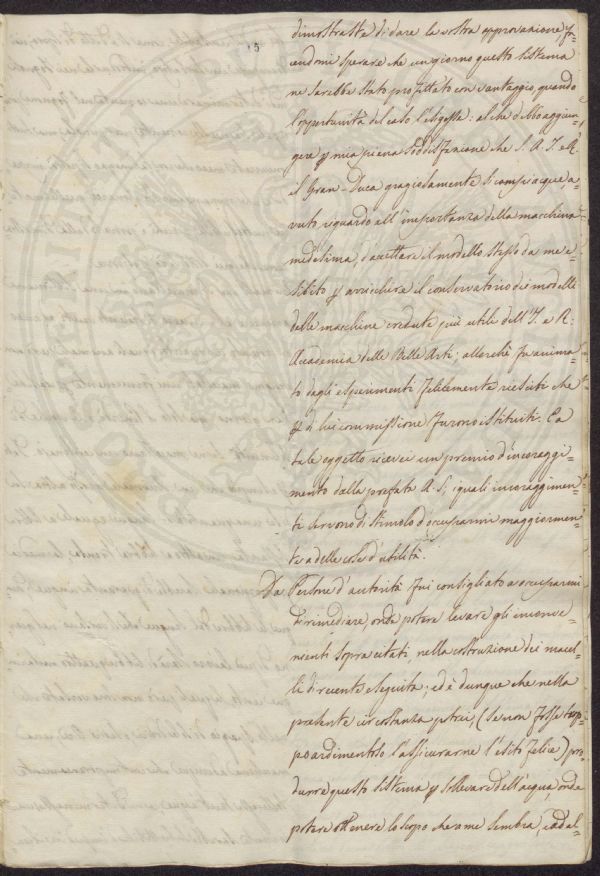 15
dimostraste di dare la vostra approvazione fa-
cendomi sperare che un giorno questo sistema
ne sarebbe stato profittato con vantaggio, quando
l'opportunità del caso l'esigesse: al che debbo aggiun-
gere p mia piena soddisfazione che S. A. I. e R.
il Gran-Duca graziosamente si compiacque, a-
vuto riguardo all'importanza della macchina
medesima, d'accettare il modello stesso da me e-
sibito p arricchire il conservatorio dei modelli
delle macchine credute più utili dell'I. e R.
Accademia delle Belle Arti; allorchè fu anima-
to dagli esperimenti felicemente riesciti che
p di lui commissione furono istituiti. E a
tale oggetto ricevei un premio d'incoraggi-
mento dalla prefata A. S., i quali incoraggimen-
ti servono di stimolo d'occuparmi maggiormen-
te a delle cose d'utilità.
Da Persone d'autorità fui consigliato a occuparmi
di rimediare, onde potere levare gli inconve-
nienti sopra citati, nella costruzione dei macel-
li di recente eseguita; ed è dunque che nella
presente circostanza potrei, (se non fosse trop-
po ardimentoso l'assicurarne l'esito felice) pro-
durre questo sistema p sollevare dell'acqua, onde
potere ottenere lo scopo che a me sembra, ed al-